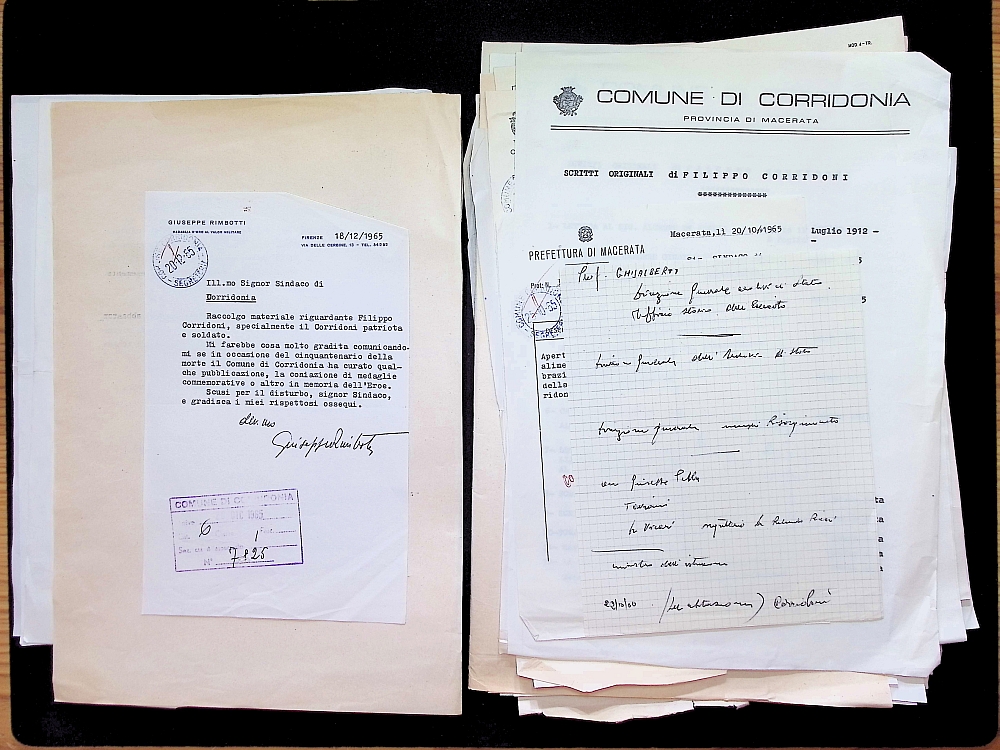 GIUSEPPE RIMBOTTI
MEDAGLIA D'ORO AL VALOR MILITARE
FIRENZE 18/12/1965
VIA DELLE CERNINE, 13 - TEL.
20.12.65
SEGRETERIA
Ill.mo Signor Sindaco di
Corridonia
Raccolgo materiale riguardante Filippo
Corridoni, specialmente il Corridoni patriota
e soldato.
Mi farebbe cosa molto gradita comunicando-
mi se in occasione del cinquantenario della
morte il Comune di Corridonia ha curato qual-
che pubblicazione, la coniazione di medaglie
commemorative o altro in memoria dell'Eroe.
Scusi per il disturbo, signor Sindaco,
e gradisca i miei rispettosi ossequi.
dev.mo
Giuseppe Rimbotti
COMUNE DI CORRIDONIA
DIC 1965
6 1
N° 7125
MOD 4-TR.
COMUNE DI CORRIDONIA
PROVINCIA DI MACERATA
SCRITTI ORIGINALI di FILIPPO CORRIDONI
Macerata,lì 20/10/1965
Luglio 1912 -
PREFETTURA DI MACERATA
Prot. N.
Apert
alime
brazi
della
ridon
Prof. GHISALBERTI
Direzione generale archivi di Stato
Ufficio storico dello Esercito
Direzione generale
on Giuseppe
Toscani
ministro dell'istruzione
Corridoni